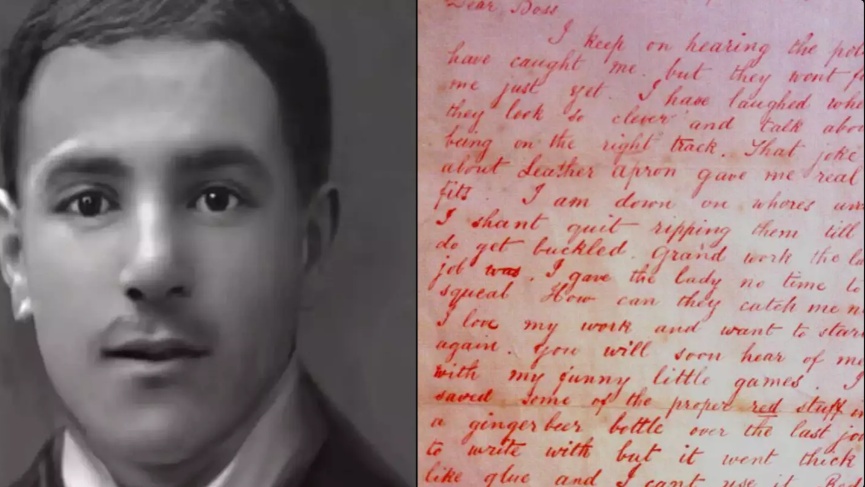 Dear Boss
I keep on hearing the
have caught me. but they wont
me just yet. I have laughed
they look so clever and talk
being on the right track. That joke
about Leather apron gave me real
fits. I am down on whores
I shant quit ripping them till
do get buckled. Grand work the
job was. I gave the lady no time to
squeal How can they catch me
I love my work and want to
again. you will soon hear of
with my funny little games. I
saved some of the proper red stuff
a ginger beer bottle over the last
to write with but it went thick
like glue and I cant use it. Red